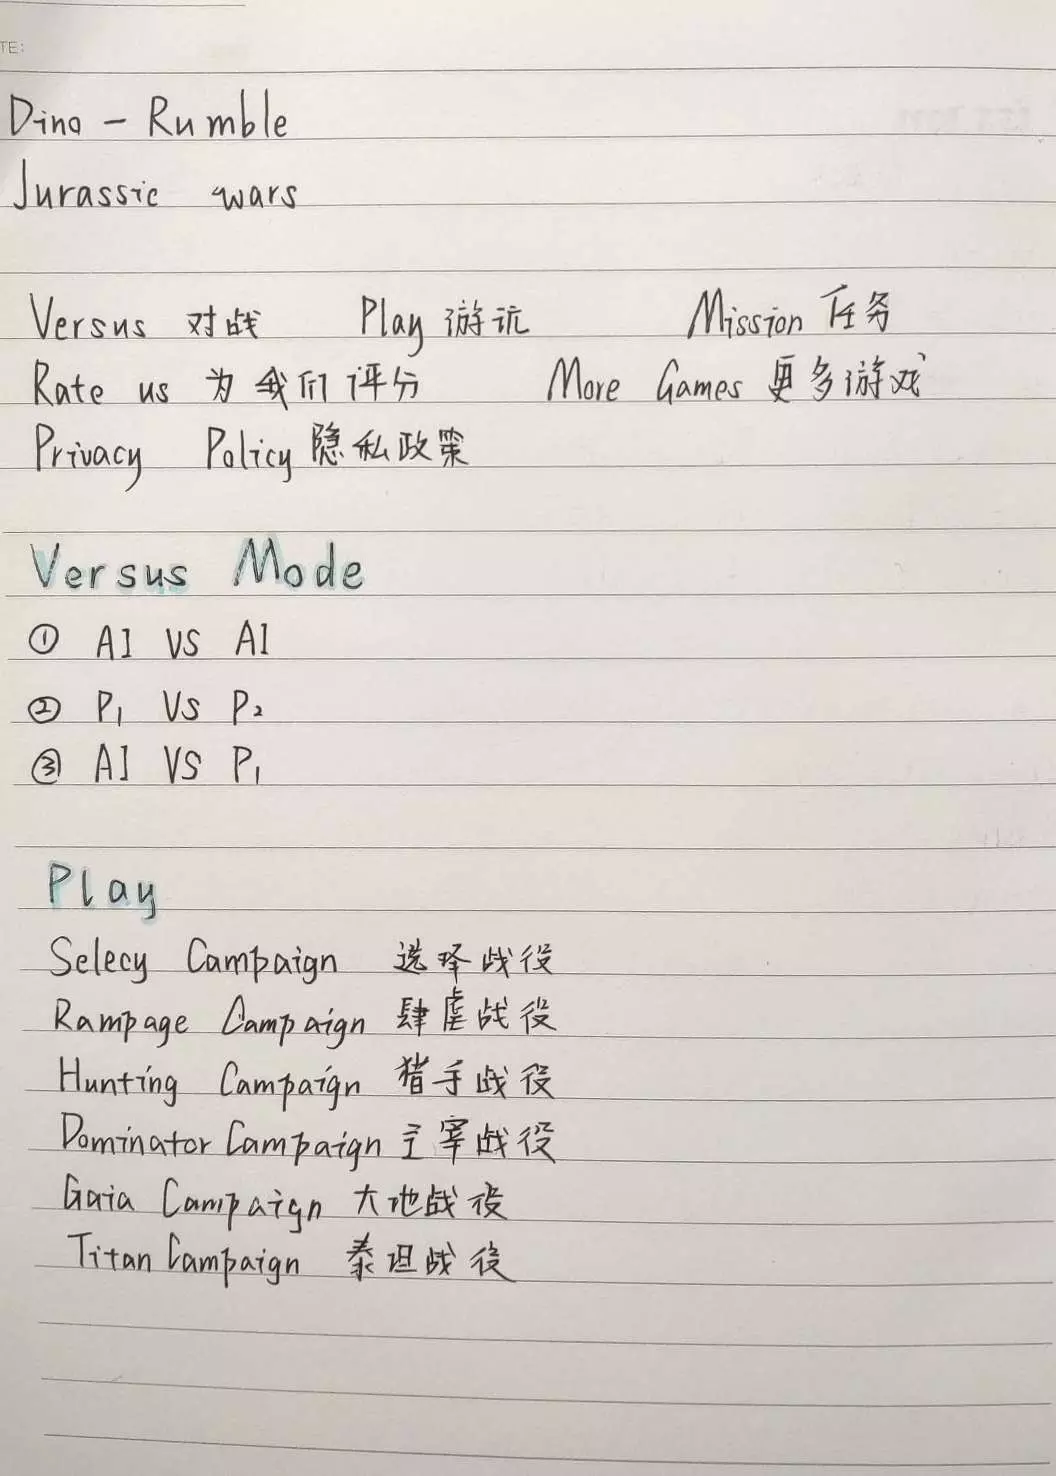 TE:
Dino - Rumble
Jurassic wars
Versus 对战 Play 游玩 Mission 任务
Rate us 为我们评分 More Games 更多游戏
Privacy Policy 隐私政策
Versus Mode
① AI VS AI
② P1 VS P2
③ AI VS P1
Play
Selecy Campaign 选择战役
Rampage Campaign 肆虐战役
Hunting Campaign 猎手战役
Dominator Campaign 主宰战役
Gaia Campaign 大地战役
Titan Campaign 泰坦战役